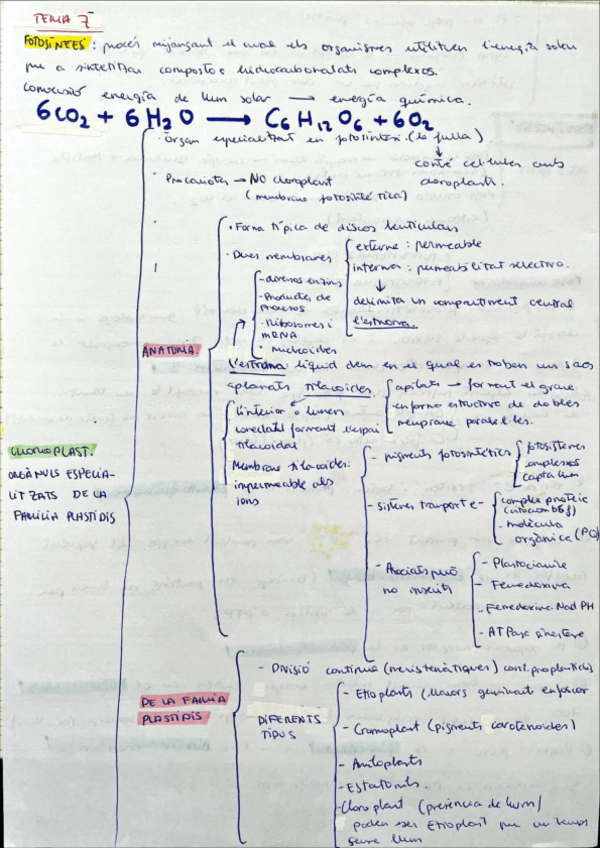 TEMA 7
FOTOSÍNTESI: procés mijançant el cual els organismes utilitzen l'energia solar
per a sintetitzar compostos hidrocarbonats complexos.
Conversió energia de llum solar → energia química.
6CO2 + 6H2O → C6H12O6 + 6O2
· Òrgan especialitzat en fotosíntesi (la fulla)
↓
conté cèl·lules amb
cloroplants.
· Procariotes → NO cloroplant
(membrana fotosintètica)
ANATOMIA
· Forma típica de discos lenticulars
· Dues membranes
externe: permeable
interna: permeabilitat selectiva.
↓
delimita un compartiment central
l'estroma.
- diversos enzims
- Productes de
processos
- Ribosomes i
mRNA
- nucleoides
L'estroma: líquid dens en el qual es troben uns sacs
aplanats tilacoides
apilats → formant el grana
en forme estructure de dobles
membrane paral·leles.
L'interior o lumen
conectat formant l'espai
tilacoidal
Membrane tilacoides:
impermeable als
ions
- pigments fotosintètics
fotosistemes
complexes
capta llum
- sistemes transport e-
complex proteic
(citocrom b6f)
- molècula
orgànica (PQ)
- Asociats però
no inserits
- Plastocianine
- Ferredoxina
- Ferredoxina Nad PH
- ATPasa sinetase
CLOROPLAST.
ORGÀNULS ESPECIA-
LITZATS DE LA
FAMILIA PLASTIDIS
DE LA FAMILIA
PLASTIDIS
- Divisió continua (meristemàtiques) cont. proplastidis
DIFERENTS
TIPOS
- Etioplants (llavors germinant enfosfor
- Cromoplant (pigments carotenoides)
- Amiloplants
- Estatolits.
- Cloroplant (presència de llum/
poden ser Etioplant per un temps
sense llum